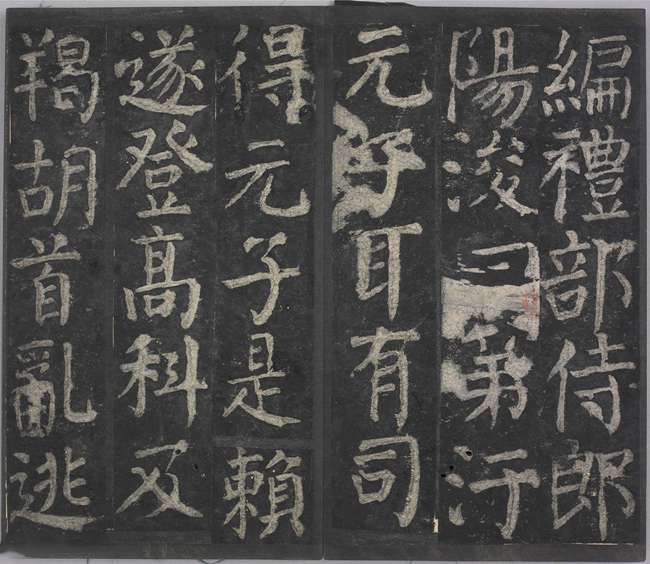 編禮部侍郎
陽浚曰一第汙
元子耳有司
得元子是賴
遂登高科及
羯胡首亂逃